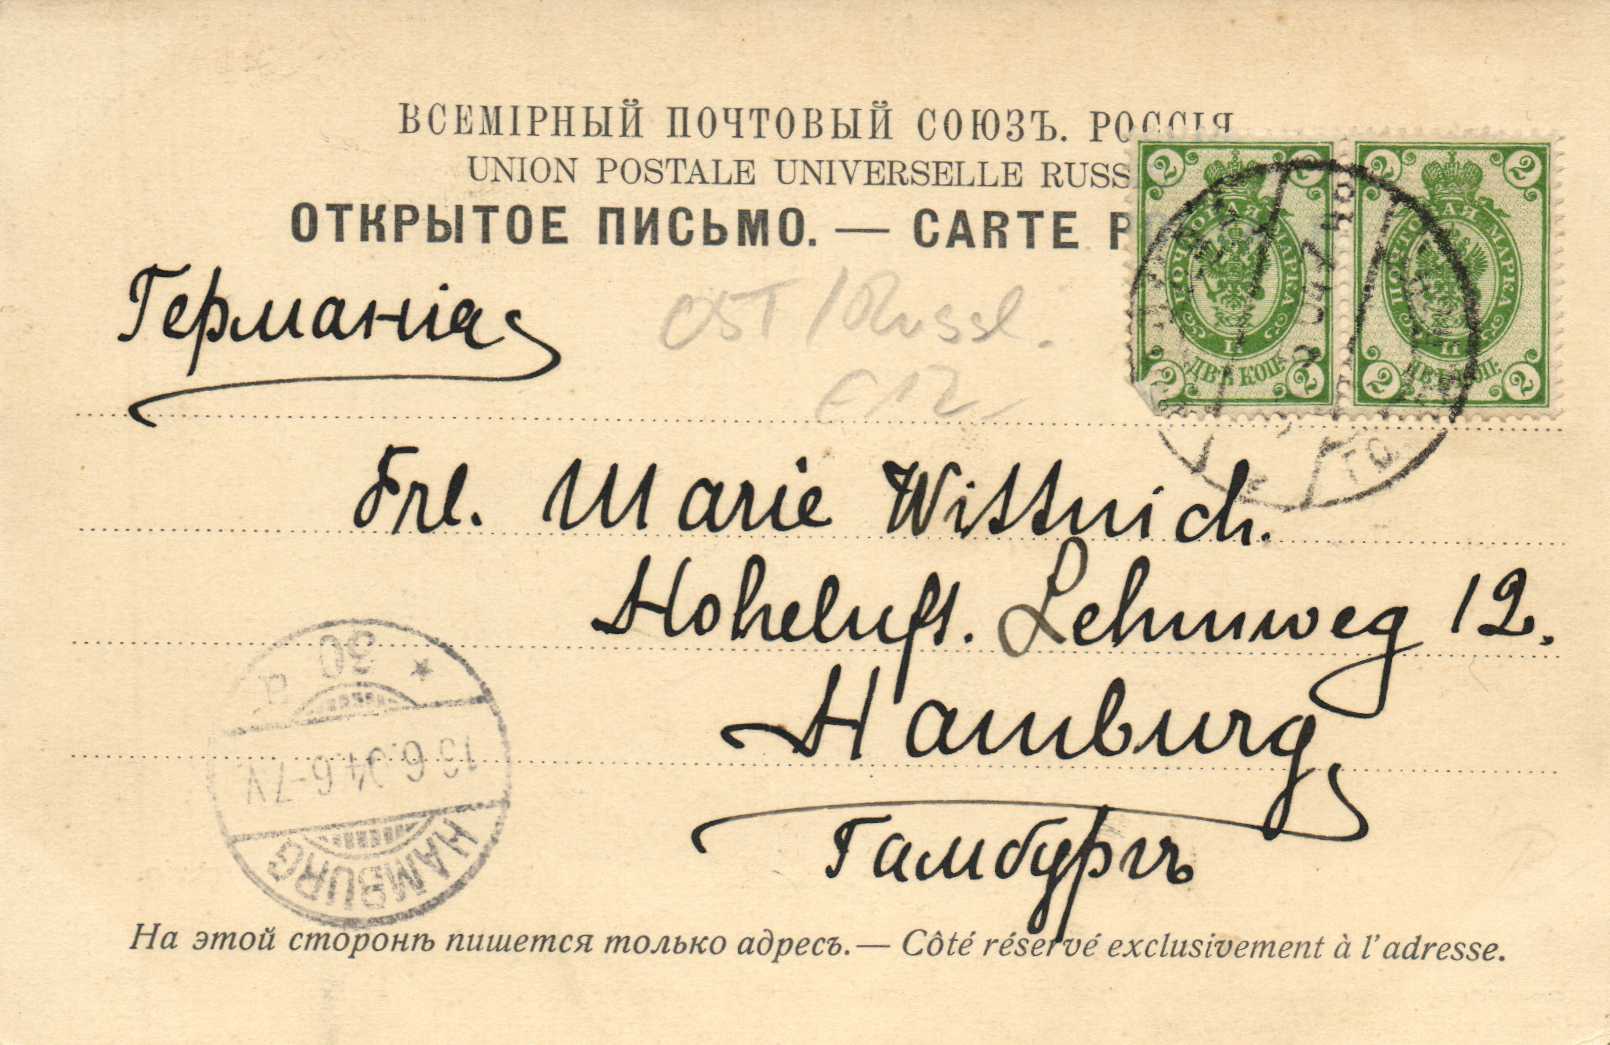 ВСЕМІРНЫЙ ПОЧТОВЫЙ СОЮЗЪ. РОССІЯ
UNION POSTALE UNIVERSELLE RUSS
ОТКРЫТОЕ ПИСЬМО. — CARTE P
2 2 2 2
ПОЧТОВАЯ МАРКА
ДВѢ КОП.
2 2 2 2
ПОЧТОВАЯ МАРКА
ДВѢ КОП.
Германія
OST/Russl.
€12,-
Frl. Marie Wittnich.
Hoheluft. Lehmweg 12.
Hamburg
Гамбургъ
HAMBURG
6.04.6-7V.
30
На этой сторонѣ пишется только адресъ.— Côté réservé exclusivement à l'adresse.